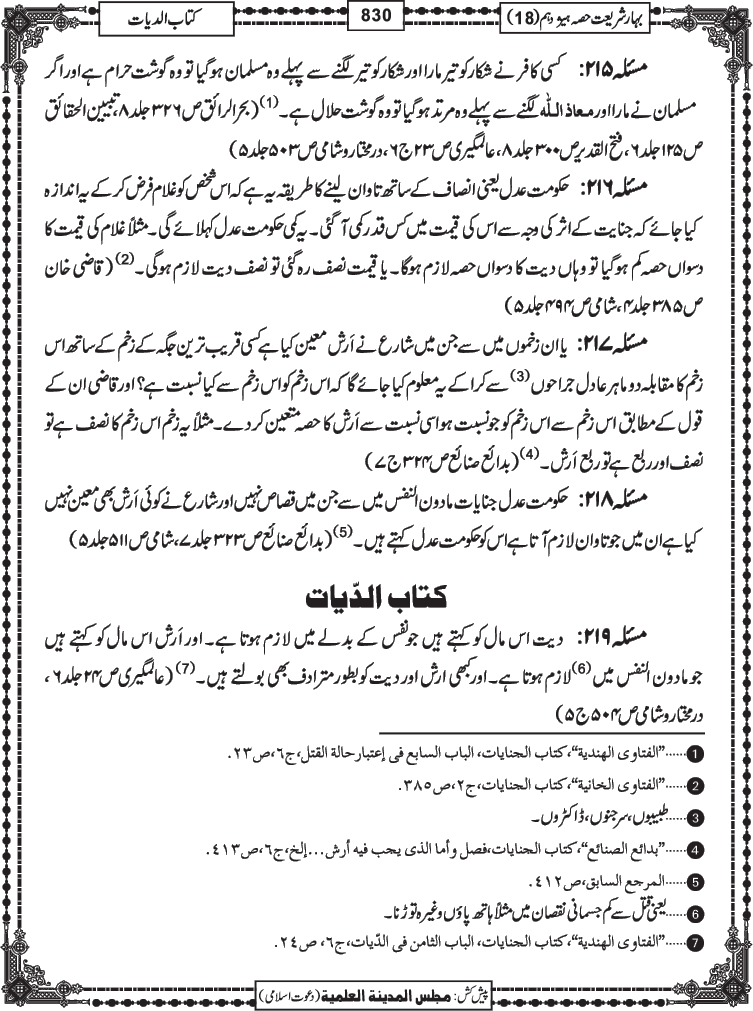 بہار شریعت حصہ ہیژدہم (18)
830
کتاب الدیات
مسئلہ ۲۱۵: کسی کافر نے شکار کو تیر مارا اور شکار کو تیر لگنے سے پہلے وہ مسلمان ہوگیا تو وہ گوشت حرام ہے اور اگر
مسلمان نے مارا اور معاذ اللہ لگنے سے پہلے وہ مرتد ہوگیا تو وہ گوشت حلال ہے۔(1) (بحرالرائق ص ۳۲۶ جلد ۸، تبیین الحقائق
ص ۱۲۵ جلد ۶، فتح القدیر ص ۳۰۰ جلد ۸، عالمگیری ص ۲۳ ج ۶، درمختار و شامی ص ۵۰۳ جلد ۵)
مسئلہ ۲۱۶: حکومت عدل یعنی انصاف کے ساتھ تاوان لینے کا طریقہ یہ ہے کہ اس شخص کو غلام فرض کر کے یہ اندازہ
کیا جائے کہ جنایت کے اثر کی وجہ سے اس کی قیمت میں کس قدر کمی آگئی۔ یہ کمی حکومت عدل کہلائے گی۔ مثلاً غلام کی قیمت کا
دسواں حصہ کم ہوگیا تو وہاں دیت کا دسواں حصہ لازم ہوگا۔ یا قیمت نصف رہ گئی تو نصف دیت لازم ہوگی۔(2) (قاضی خان
ص ۳۸۵ جلد ۴، شامی ص ۴۹۴ جلد ۵)
مسئلہ ۲۱۷: یا ان زخموں میں سے جن میں شارع نے اَرش معین کیا ہے کسی قریب ترین جگہ کے زخم کے ساتھ اس
زخم کا مقابلہ دو ماہر عادل جراحوں(3) سے کرا کے یہ معلوم کیا جائے گا کہ اس زخم کو اس زخم سے کیا نسبت ہے؟ اور قاضی ان کے
قول کے مطابق اس زخم سے اس زخم کو جو نسبت ہو اسی نسبت سے اَرش کا حصہ متعین کردے۔ مثلاً یہ زخم اس زخم کا نصف ہے تو
نصف اور ربع ہے تو ربع اَرش۔(4) (بدائع صنائع ص ۳۲۴ ج ۷)
مسئلہ ۲۱۸: حکومت عدل جنایات مادون النفس میں سے جن میں قصاص نہیں اور شارع نے کوئی اَرش بھی معین نہیں
کیا ہے ان میں جو تاوان لازم آتا ہے اس کو حکومت عدل کہتے ہیں۔(5) (بدائع صنائع ص ۳۲۳ جلد ۷، شامی ص ۵۱۱ جلد ۵)
کتاب الدّیات
مسئلہ ۲۱۹: دیت اس مال کو کہتے ہیں جو نفس کے بدلے میں لازم ہوتا ہے۔ اور اَرش اس مال کو کہتے ہیں
جو مادون النفس میں(6) لازم ہوتا ہے۔ اور کبھی ارش اور دیت کو بطور مترادف بھی بولتے ہیں۔(7) (عالمگیری ص ۲۴ جلد ۶،
درمختار و شامی ص ۵۰۴ ج ۵)
1......"الفتاوی الهندیة"، کتاب الجنایات، الباب السابع فی إعتبار حالة القتل، ج٦، ص٢٣.
2......"الفتاوی الخانیة"، کتاب الجنایات، ج٢، ص٣٨٥.
3......طبیبوں، سرجنوں، ڈاکٹروں۔
4......"بدائع الصنائع"، کتاب الجنایات، فصل و أما الذی یجب فیه أرش... إلخ، ج٦، ص٤١٣.
5......المرجع السابق، ص٤١٢.
6......یعنی قتل سے کم جسمانی نقصان میں مثلاً ہاتھ پاؤں وغیرہ توڑنا۔
7......"الفتاوی الهندیة"، کتاب الجنایات، الباب الثامن فی الدّیات، ج٦، ص٢٤.
پیش کش: مجلس المدینة العلمیة (دعوت اسلامی)